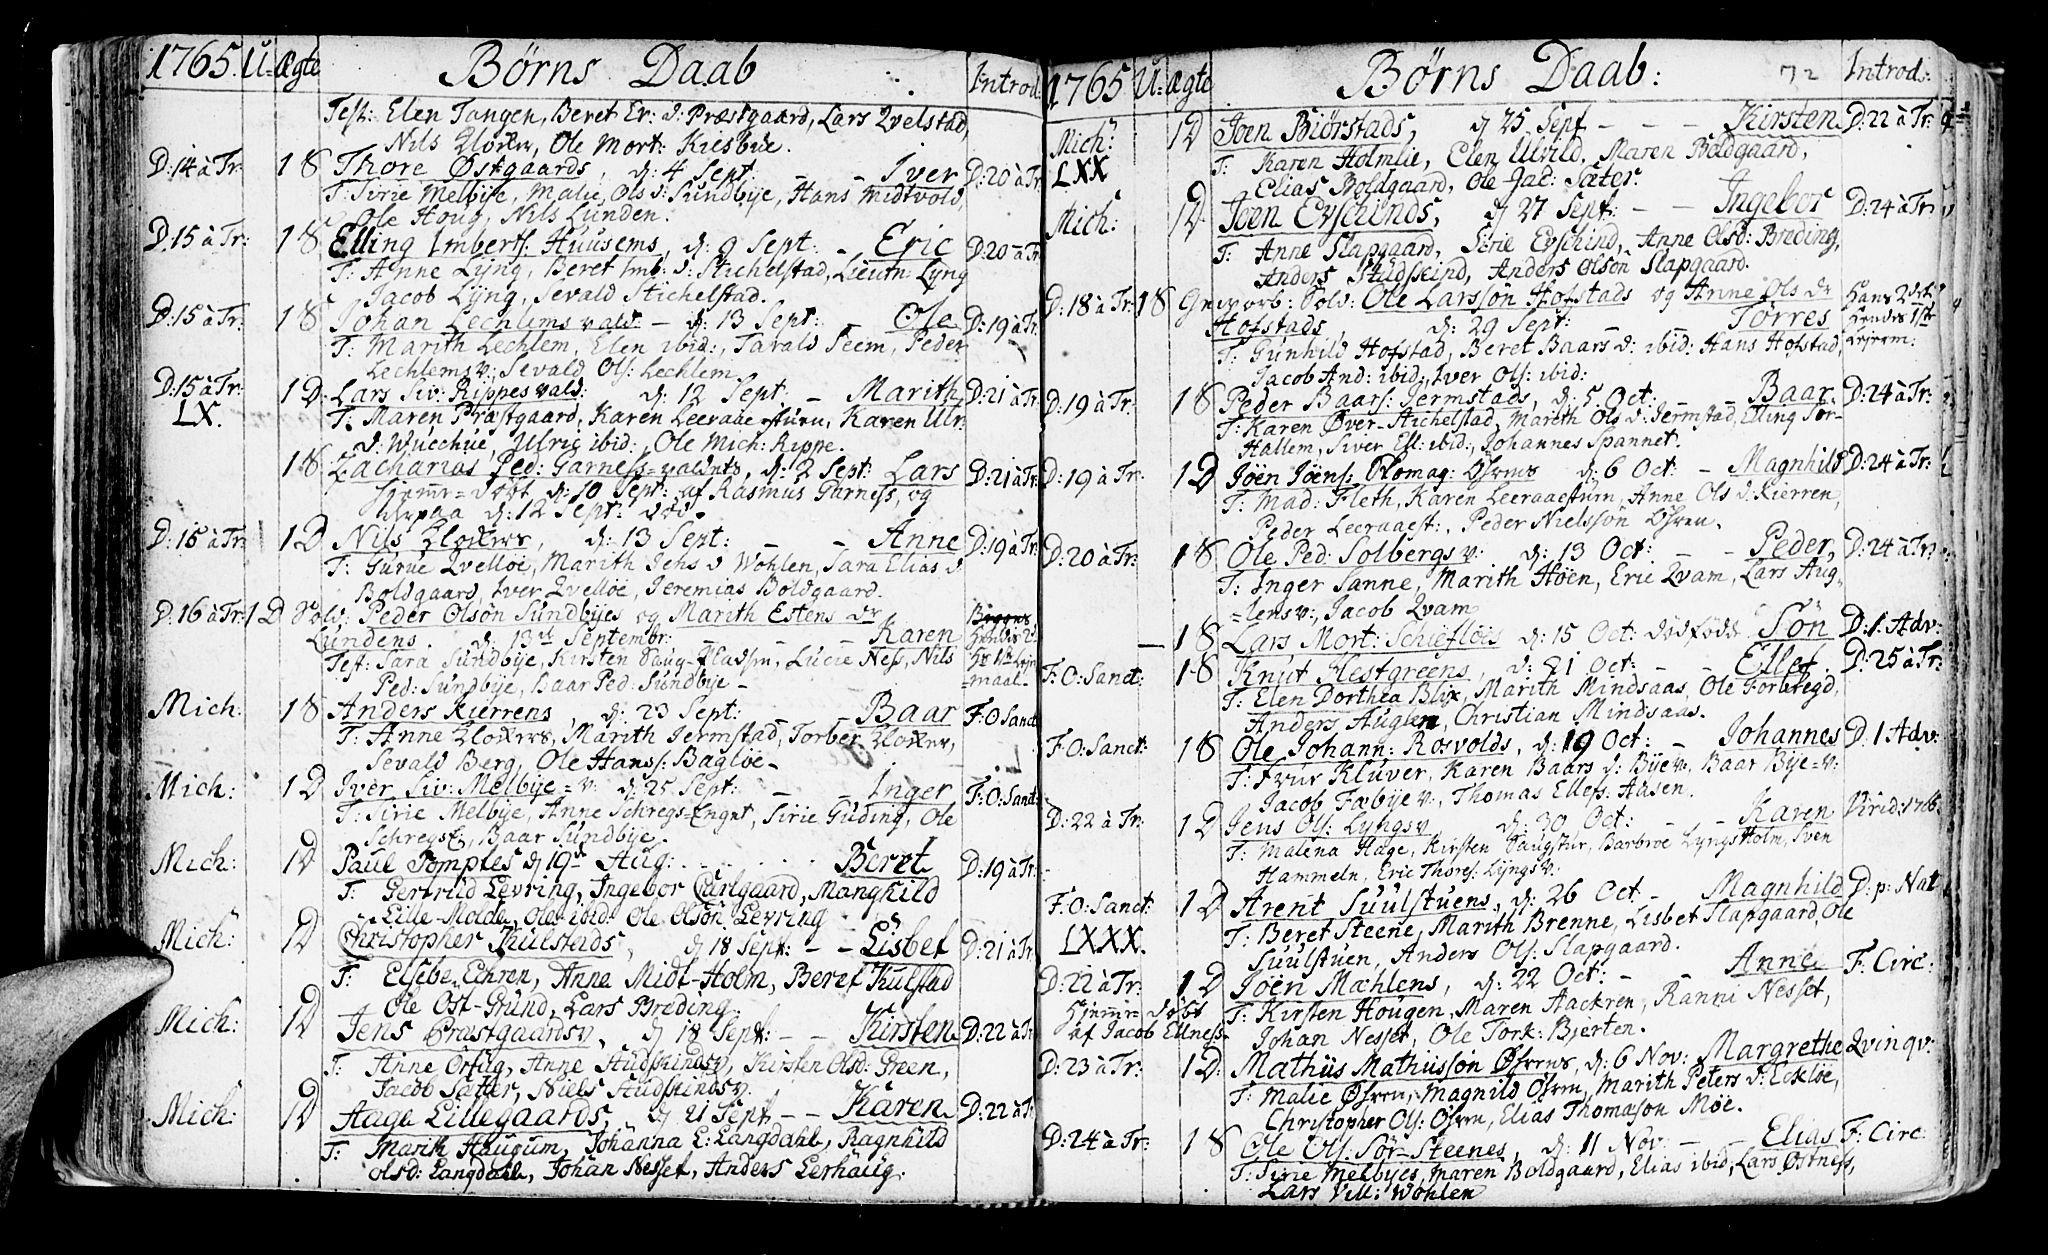 1765. U= Ægte Børns Daab Introd.
Test: Elen Tangen, Beret Er: d: Præstgaard, Lars Qvelstad,
Nils Klocker, Ole Mort: Kiesbüe.
D: 14 à Tr: 1 S Thore Østgaards, d: 4 Sept: – – Iver D: 20 à Tr:
T: Sirie Melbÿe, Malie, Ols d: Sundbÿe, Hans Midtvold,
Ole Houg, Nils Lunden.
D. 15 à Tr: 1 S Elling Imberts: Huusems, d: 9 Sept: – Eric D: 20 à Tr
T: Anne Lÿng, Beret Imb: d: Stichelstad, Lieutn: Lÿng
Jacob Lÿng, Sevald Stichelstad.
D: 15 à Tr: 1 S Johan Lechlems vald: – d: 13 Sept: – Ole D: 19 à Tr:
T: Marith Lechlem, Elen ibid:, Tarald Seem, Peder
Lechlems v:, Sevald Ols: Lechlem
D: 15 à Tr: 1 D Lars Siv: Rippes vald: d: 12 Sept. – Marith D: 21 à Tr:
LX. T: Maren Præstgaard, Karen Leeraaestuen, Karen Ulr:
d: Wuechue, Ulric ibid:, Ole Mich: Rippe.
1 S Zacharias Ped: Garness=valdets, d: 2 Sept: Lars D: 21 à Tr:
Hjemme=Døbt d: 10 Sept: af Rasmus Garness, og
derpaa d: 12 Sept: død.
D: 15 à Tr: 1 D Nils Klockers, d: 13 Sept: – – Anne D: 19 à Tr:
T: Gurue Qvelloe, Marith Jehs d Wohlen, Sara Elias d
Boldgaard, Iver Qvelloe, Jeremias Boldgaard.
D. 16 à Tr: 1 D Sold: Peder Olsøn Sundbÿes og Marith Estens dr
Lundens. d: 13de Septembr: – – Karen
Test: Sara Sundbÿe, Kirsten Saug-Pladsen, Lucie Ness, Nils
Ped: Sundbÿe, Baar Ped: Sundbÿe –
Mich: 1 S Anders Kierrens, d: 23 Sept: – Baar F. O. Sanct
T: Anne Klockers, Marith Jermstad, Torber Klocker,
Sevald Berg, Ole Hans: Bagloe –
Mich: 1 D Iver Siv: Melbÿe=v: d: 25 Sept: – – Inger F: O: Sanct
T: Sirie Melbÿe, Anne Schregs-Enget, Sirie Guding, Ole
Schregs E, Baar Sundbÿe.
Mich: 1 D Paul Tomptes d 19de Aug: Beret D: 19 à Tr:
T: Gertrüd Levring, Ingebor Carlgaard, Manghild
Lille-Molde, Ole ibid: Ole Olsøn Levring
Mich: 1 D Christopher Külstads, d 18 Sept: – – Lisbet D: 21 à Tr
T: Elsebe Ehren, Anne Midt-Holm, Beret Külstad
Ole Ost-Gründ, Lars Breding.
Mich: 1 D Jens Præstgaards v, d 18 Sept: – – Kirsten D: 22 à Tr:
T: Anne Orfug, Anne Stüdskinds v, Kirsten Olsd: Green,
Jacob Sæter, Niels Stüdskinds v.
Mich: 1 D Aage Lillegaards, d 21 Sept – – Karen D: 22 à Tr
T: Marith Haugum, Johanna L: Langdahl, Ragnhild
Olsd: Langdahl, Johan Nesset, Anders Lerhaug.
1765 U: ægte Børns Daab: 72 Introd:
Mich: 1 D Joen Biørstads, d 25 Sept – – – Kirsten D: 22 à Tr:
LXX T: Karen Holmlie, Elen Ulvild, Maren Boldgaard,
Elias Boldgaard, Ole Jac: Sæter.
Mich: 1 D. Joen Eÿschinds, d 27 Sept: – – Ingebor D: 24 à Tr
T: Anne Slapgaard, Sirie Eÿschind, Anne Olsd: Breding,
Anders Studskind, Anders Olsøn Slapgaard.
D: 18 à Tr: 1 S Gevorb: Sold: Ole Larssøn Hofstads og Anne Ols dr
Hofstads, d: 29 Sept: Torres
T: Gunhild Hofstad, Beret Baars d: ibid: Hans Hofstad,
Jacob And: ibid:, Iver Ols: ibid:
D: 19 à Tr: 1 S Peder Baars: Jermstads, d: 5 Oct: – – Baar D: 24 à Tr:
T: Karen Øver-Stichelstad, Marith Ols d: Jermstad, Elling Tor-
Hallem, Siver Ell: ibid:, Johannes Spannet.
D: 19 à Tr: 1 D Joen Joens: Olomag: Øsrens d: 6 Oct: – Magnhild D: 24 à Tr:
T: Mad: Fleth, Karen Leeraaestuen, Anne Ols d: Kierren,
Peder Leeraaest:, Peder Nielssøn Øsren.
D: 20 à Tr: 1 S Ole Ped: Solbergs v: d: 13 Oct: – – Peder, D: 24 à Tr:
T: Inger Sanne, Marith Høen, Eric Qvam, Lars Aug-
=lens v:, Jacob Qvam
— 1 S Lars Mort: Schiefloes d: 15 Oct: dødfødt Søn D: 1. Adv:
F. O: Sanct: 1 S Knut Hestgreens, d: 21 Oct: – – Ellef. D: 25 à Tr:
T: Elen Dorthea Blix, Marith Mindsaas, Ole Forbregd,
Anders Auglen, Christian Mindsaas.
F: O: Sanct: 1 S Ole Johann: Rosvolds, d: 19 Oct: – Johannes D: 1 Adv:
T: Frue Klüver, Karen Baars d: Bÿe v:, Baar Bÿe=v:
Jacob Fæbÿe v:, Thomas Ellefs: Aasen.
D: 22 à Tr: 1 D Jens Ols: Lÿngs v d: 30 Oct: – – Karen Virid: 1766.
T: Malena Hage, Kirsten Saugstur, Barbroe Lyngsholm, Sven
Hammeln, Eric Thores: Lÿngs v:
F: O: Sanct: 1 D Arent Suulstuens, d: 26 Oct – Magnhild D: p: Nat
LXXX. T: Beret Steene, Marith Brenne, Lisbet Slapgaard, Ole
Suulstuen, Anders Ols: Slapgaard.
D: 22 à Tr: 1 D Joen Mæhlens, d: 22 Oct: – – Anne F: Circ:
Hjemme=døbt T: Kirsten Hougen, Maren Aackren, Ranni Nesset,
af Jacob Ellness. Johan Nesset, Ole Tork: Bjerten.
D: 23 à Tr: 1 D. Mathiis Mathiissøn Øsrens, d: 6 Nov: Margrethe Qvinqv:
T: Malie Øsren, Magnild Øsren, Marith Peters d: Eckloe,
Christopher Ols: Øsren, Elias Thomasøn Moe.
D: 24 à Tr: 1 S Ole Ols: Sør-Steenes, d: 11 Nov: – – Elias F: Circ:
T: Sirie Melbÿes, Maren Boldgaard, Elias ibid, Lars Østness,
Lars Vill: Wohlen